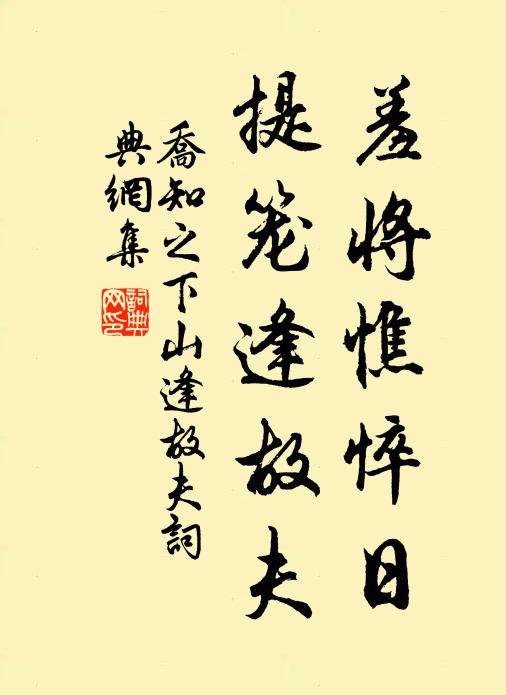 羞將憔悴日
提笼逢故夫
喬知之下山逢故夫詞
典網集
詞典
网印